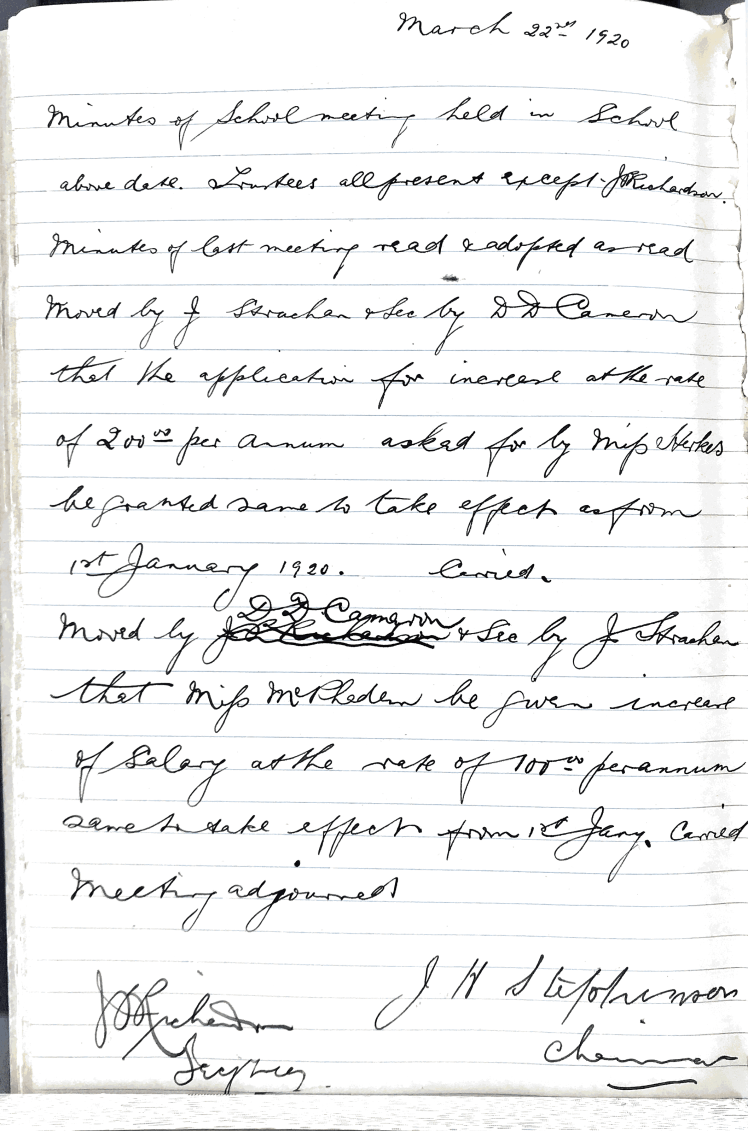 March 22nd 1920
Minutes of School meeting held in School
above date. Trustees all present except J Richardson.
Minutes of last meeting read & adopted as read
Moved by J Strachan & Sec by D D Cameron
that the application for increase at the rate
of 200 00 per annum asked for by Miss Herkes
be granted same to take effect as from
1st January 1920. Carried.
D D Cameron
Moved by & Sec by J Strachan
that Miss McPhedern be given increase
of Salary at the rate of 100 00 per annum
same to take effect from 1st Jany. Carried
Meeting adjourned
J H Stephenson
Chairman
Richardson